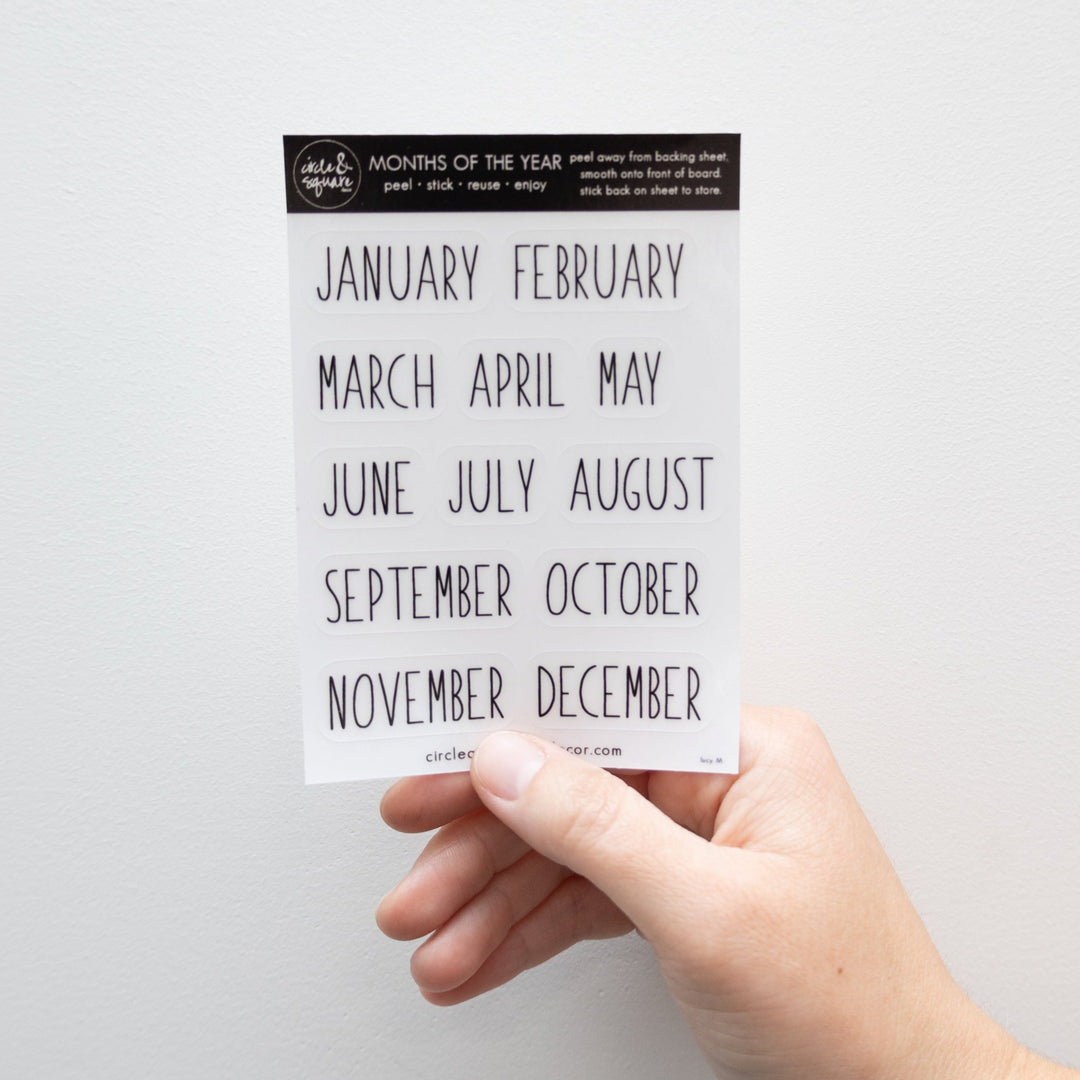 circle &
square
decor
MONTHS OF THE YEAR
peel • stick • reuse • enjoy
peel away from backing sheet,
smooth onto front of board.
stick back on sheet to store.
JANUARY FEBRUARY
MARCH APRIL MAY
JUNE JULY AUGUST
SEPTEMBER OCTOBER
NOVEMBER DECEMBER
lucy M